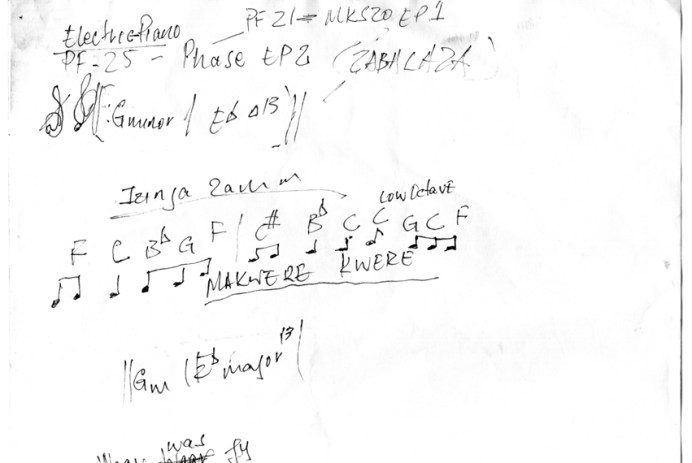 PF21 = MKS20 EP1
Electric Piano
PF-25 - Phase EP2 (ZABALAZA)
‖: Gminor / Eb Δ13 ‖
Izinga
Low Octave
F C Bb G F | C# Bb C C G C F
MAKWERE KWERE
‖ Gm | Eb major 13 |
was